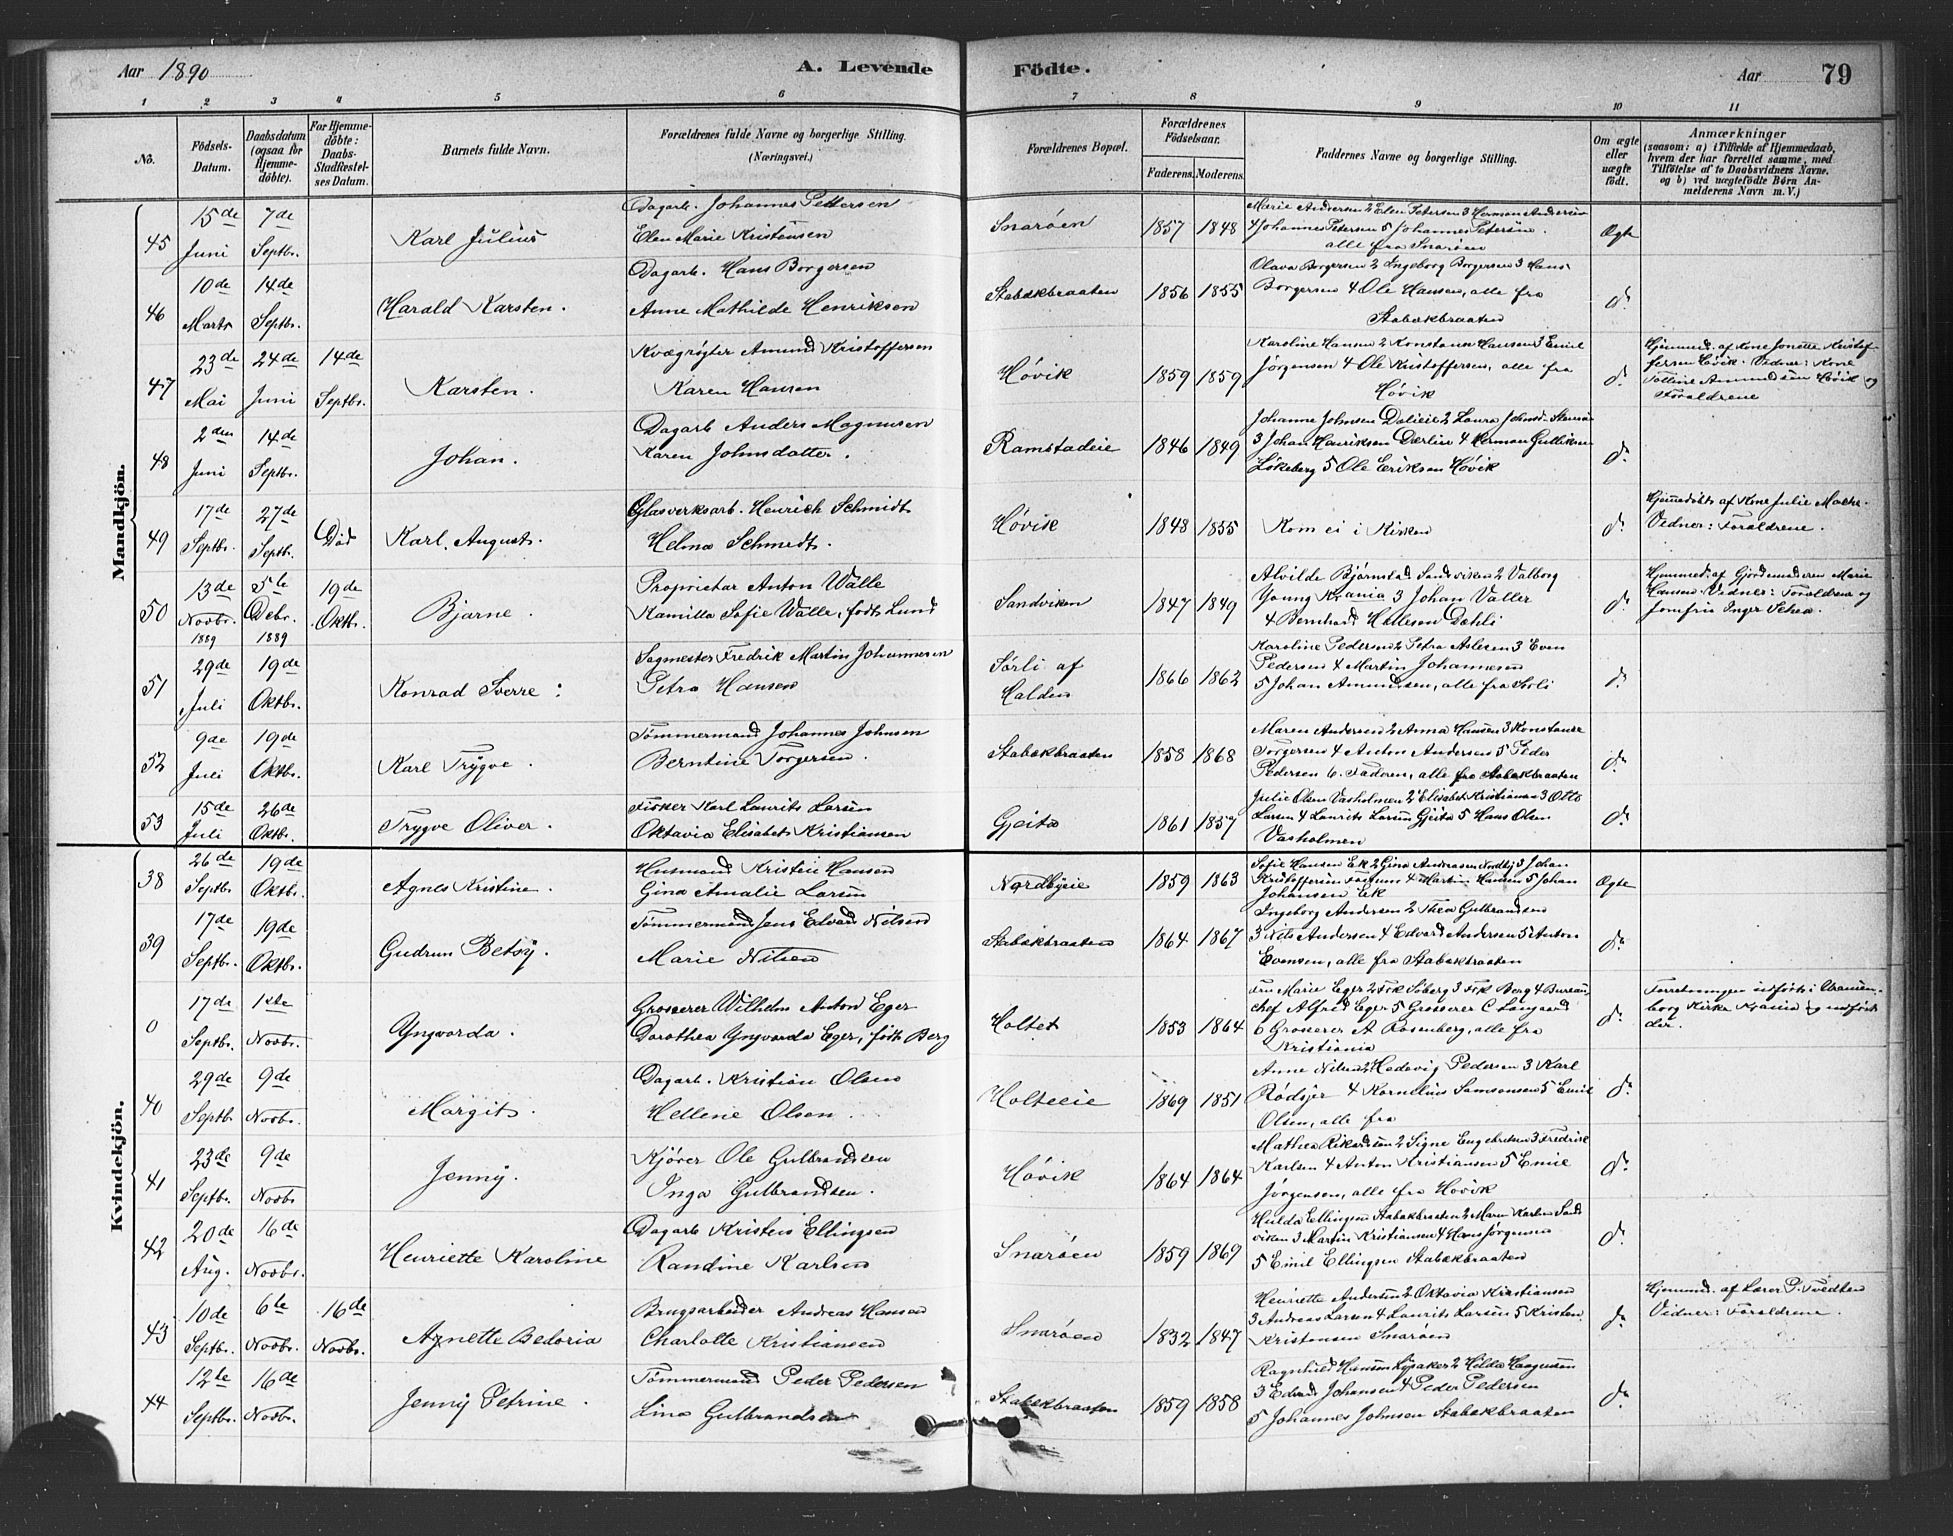 Aar 1890
A. Levende Födte.
Aar 79
1 2 3 4 5 6 7 8 9 10 11
No.
Födsels-Datum.
Daabsdatum (ogsaa for Hjemme-döbte).
For Hjemme-döbte: Daabs-Stadfæstel-ses Datum.
Barnets fulde Navn.
Forældrenes fulde Navne og borgerlige Stilling.
(Næringsvei.)
Forældrenes Bopæl.
Forældrenes Födselsaar.
Faderens. Moderens.
Faddernes Navne og borgerlige Stilling.
Om ægte eller uægte födt.
Anmærkninger
(saasom: a) i Tilfælde af Hjemmedaab, hvem der har forrettet samme, med Tilföielse af to Daabsvidners Navne. og b) ved uægtefödte Börn An-melderens Navn m. V.)
Mandkjön.
45 15de Juni 7de Septbr. Karl Julius
Dagarb. Johannes Pettersen
Elen Marie Kristensen
Snarøen 1857 1848
Marie Andersen 2 Elen Petersen 3 Herman Andersen
4 Johannes Petersen 5 Johannes Petersen.
alle fra Snarøen
Ægte
46 10de Marts 14de Septbr. Harald Karsten.
Dagarb. Hans Borgersen
Anne Mathilde Henriksen
Stabækbraaten 1856 1855
Olava Borgersen 2 Ingeborg Borgersen 3 Hans
Borgersen 4 Ole Hansen, alle fra
Stabækbraaten
do
47 23de Mai 24de Juni 14de Septbr. Karsten.
Kvægrøgter Amund Kristoffersen
Karen Hansen
Høvik 1859 1859
Karoline Hansen 2 Konstanse Hansen 3 Emil
Jørgensen 4 Ole Kristoffersen, alle fra
Høvik
do
Hjemmed. af Kone Jonette Kristof-
fersen Høvik. Vidner: Kone
Amundsen Høvik og
Forældrene
48 2den Juni 14de Septbr. Johan.
Dagarb. Anders Magnusen
Karen Johnsdatter.
Ramstadeie 1846 1849
Johanne Johnsen 2 Laura Johnsd.
3 Johan Henriksen 4 Herman Gulliksen
Løkeberg 5 Ole Eriksen Høvik
do
49 17de Septbr. 27de Septbr. Død Karl August.
Glasverksarb. Henrich Schmidt
Helma Schmidt.
Høvik 1848 1855
Kom ei i Kirken
do
Hjemmedøbt af Kone Julie
Vidner: Forældrene.
50 13de Novbr. 1889 5te Debr. 1889 19de Oktbr. Bjarne.
Proprietær Anton Walle
Kamilla Sofie Walle, født Lund
Sandviken 1847 1849
Alvilde Bjørnstad Sandviken 2 Valborg
Young Krania 3 Johan Valler
4 Bernhard Hallesen Dæhli
do
Hjemmed. af Gjordemoderen Marie
Hansen. Vidner: Forældrene og
Jomfru Inger
51 29de Juli 19de Oktbr. Konrad Sverre.
Sagmester Fredrik Martin Johannesen
Petra Hansen
Sørli af
Halden
1866 1862
Karoline Pedersen 2 Petra Aslesen 3 Even
Pedersen 4 Martin Johannesen
5 Johan Amundsen, alle fra Sørli
do
52 9de Juli 19de Oktbr. Karl Trygve.
Tømmermand Johannes Johnsen
Berntine Torgersen.
Stabækbraaten 1858 1868
Maren Andersen 2 Anna Hansen 3 Konstanse
Torgersen 4 Anton Andersen 5 Peder
Pedersen 6. Faderen, alle fra Stabækbraaten
do
53 15de Juli 26de Oktbr. Trygve Oliver.
Fisker Karl Laurits Larsen
Oktavia Elisabet Kristiansen
Gjeita 1861 1857
Julie Olsen Vasholmen 2 Elisabet Kristiansen 3 Otto
Larsen 4 Laurits Larsen Gjeita 5 Hans Olsen
Vasholmen
do
Kvindekjön.
38 26de Septbr. 19de Oktbr. Agnes Kristine.
Husmand Kristen Hansen
Gina Amalie Larsen
Nordbyeie 1859 1863
Sofie Hansen Ek 2 Gina Andreasen Nordby 3 Johan
Kristoffersen 4 Martin Hansen 5 Johan
Johansen Ek
Ægte
39 17de Septbr. 19de Oktbr. Gudrun Betsy.
Tømmermand Jens Edvard Nilsen
Marie Nilsen
Stabækbraaten 1864 1867
Ingeborg Andersen 2 Thea Gulbrandsen
3 Nils Andersen 4 Edvard Andersen 5 Anton
Evensen, alle fra Stabækbraaten
do
0 17de Septbr. 1ste Novbr. Yngvorda.
Grosserer Wilhelm Anton Eger
Dorothea Yngvorda Eger, født Berg
Holtet 1853 1864
Fru Marie Eger 2 Frk Soberg 3 Frk Berg 4 Bureau-
chef Alfred Eger 5 Grosserer C Langaard
6 Grosserer A Rosenberg, alle fra
Kristiania
do
Forretningen udført i Uranien-
borg Kirke Krania og indført
der.
40 29de Septbr. 9de Novbr. Margit.
Dagarb. Kristian Olsen
Hellene Olsen.
Holteeie 1869 1851
Anne Nilsen 2 Hedevig Pedersen 3 Karl
Rødsjer 4 Kornelius Samsonsen 5 Emil
Olsen, alle fra
do
41 23de Septbr. 9de Novbr. Jenny.
Kjører Ole Gulbrandsen
Inga Gulbrandsen.
Høvik 1864 1864
Mathea Rikardsen 2 Signe Engebretsen 3 Fredrik
Karlsen 4 Anton Kristiansen 5 Emil
Jørgensen, alle fra Høvik
do
42 20de Aug. 16de Novbr. Henriette Karoline
Dagarb Kristen Ellingsen
Randine Karlsen
Snarøen 1859 1869
Hulda Ellingsen Stabækbraaten 2 Maren Karlsen Sand-
viken 3 Martin Kristiansen 4 Hans Jørgensen
5 Emil Ellingsen Stabækbraaten
do
43 10de Septbr. 6te Novbr. 16de Novbr. Agnette Bedoria
Brugsarbeider Andreas Hansen
Charlotte Kristiansen
Snarøen 1832 1847
Henriette Andersen 2 Oktavia Kristiansen
3 Andreas Larsen 4 Laurits Larsen 5 Kristen
Kristensen Snarøen
do
Hjemmd. af Lærer P. Tvedten
Vidner: Forældrene.
44 12te Septbr. 16de Novbr. Jenny Petrine.
Tømmermand Peder Pedersen
Lina Gulbrandsen
Stabækbraaten 1859 1858
Ragnhild Hansen Lysaker 2 Hilda Haagensen
3 Edvard Johansen 4 Peder Pedersen
5 Johannes Johnsen Stabækbraaten
do